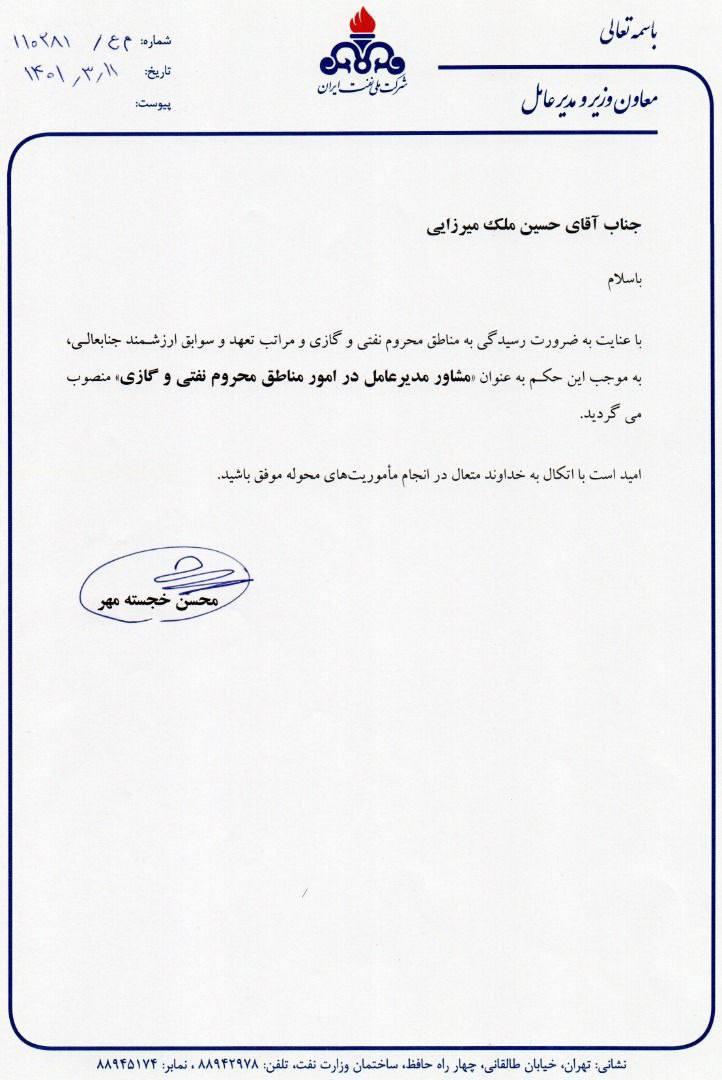 باسمه تعالی
شماره: م ع / ۱۱۰۲۸۱
تاریخ: ۱۴۰۱٫۳٫۱۱
پیوست:
شرکت ملی نفت ایران
معاون وزیر و مدیر عامل
جناب آقای حسین ملک میرزایی
باسلام
با عنایت به ضرورت رسیدگی به مناطق محروم نفتی و گازی و مراتب تعهد و سوابق ارزشمند جنابعالی،
به موجب این حکم به عنوان «مشاور مدیرعامل در امور مناطق محروم نفتی و گازی» منصوب
می گردید.
امید است با اتکال به خداوند متعال در انجام مأموریت‌های محوله موفق باشید.
محسن خجسته مهر
نشانی: تهران، خیابان طالقانی، چهار راه حافظ، ساختمان وزارت نفت، تلفن: ۸۸۹۴۲۹۷۸ ، نمابر: ۸۸۹۴۵۱۷۴